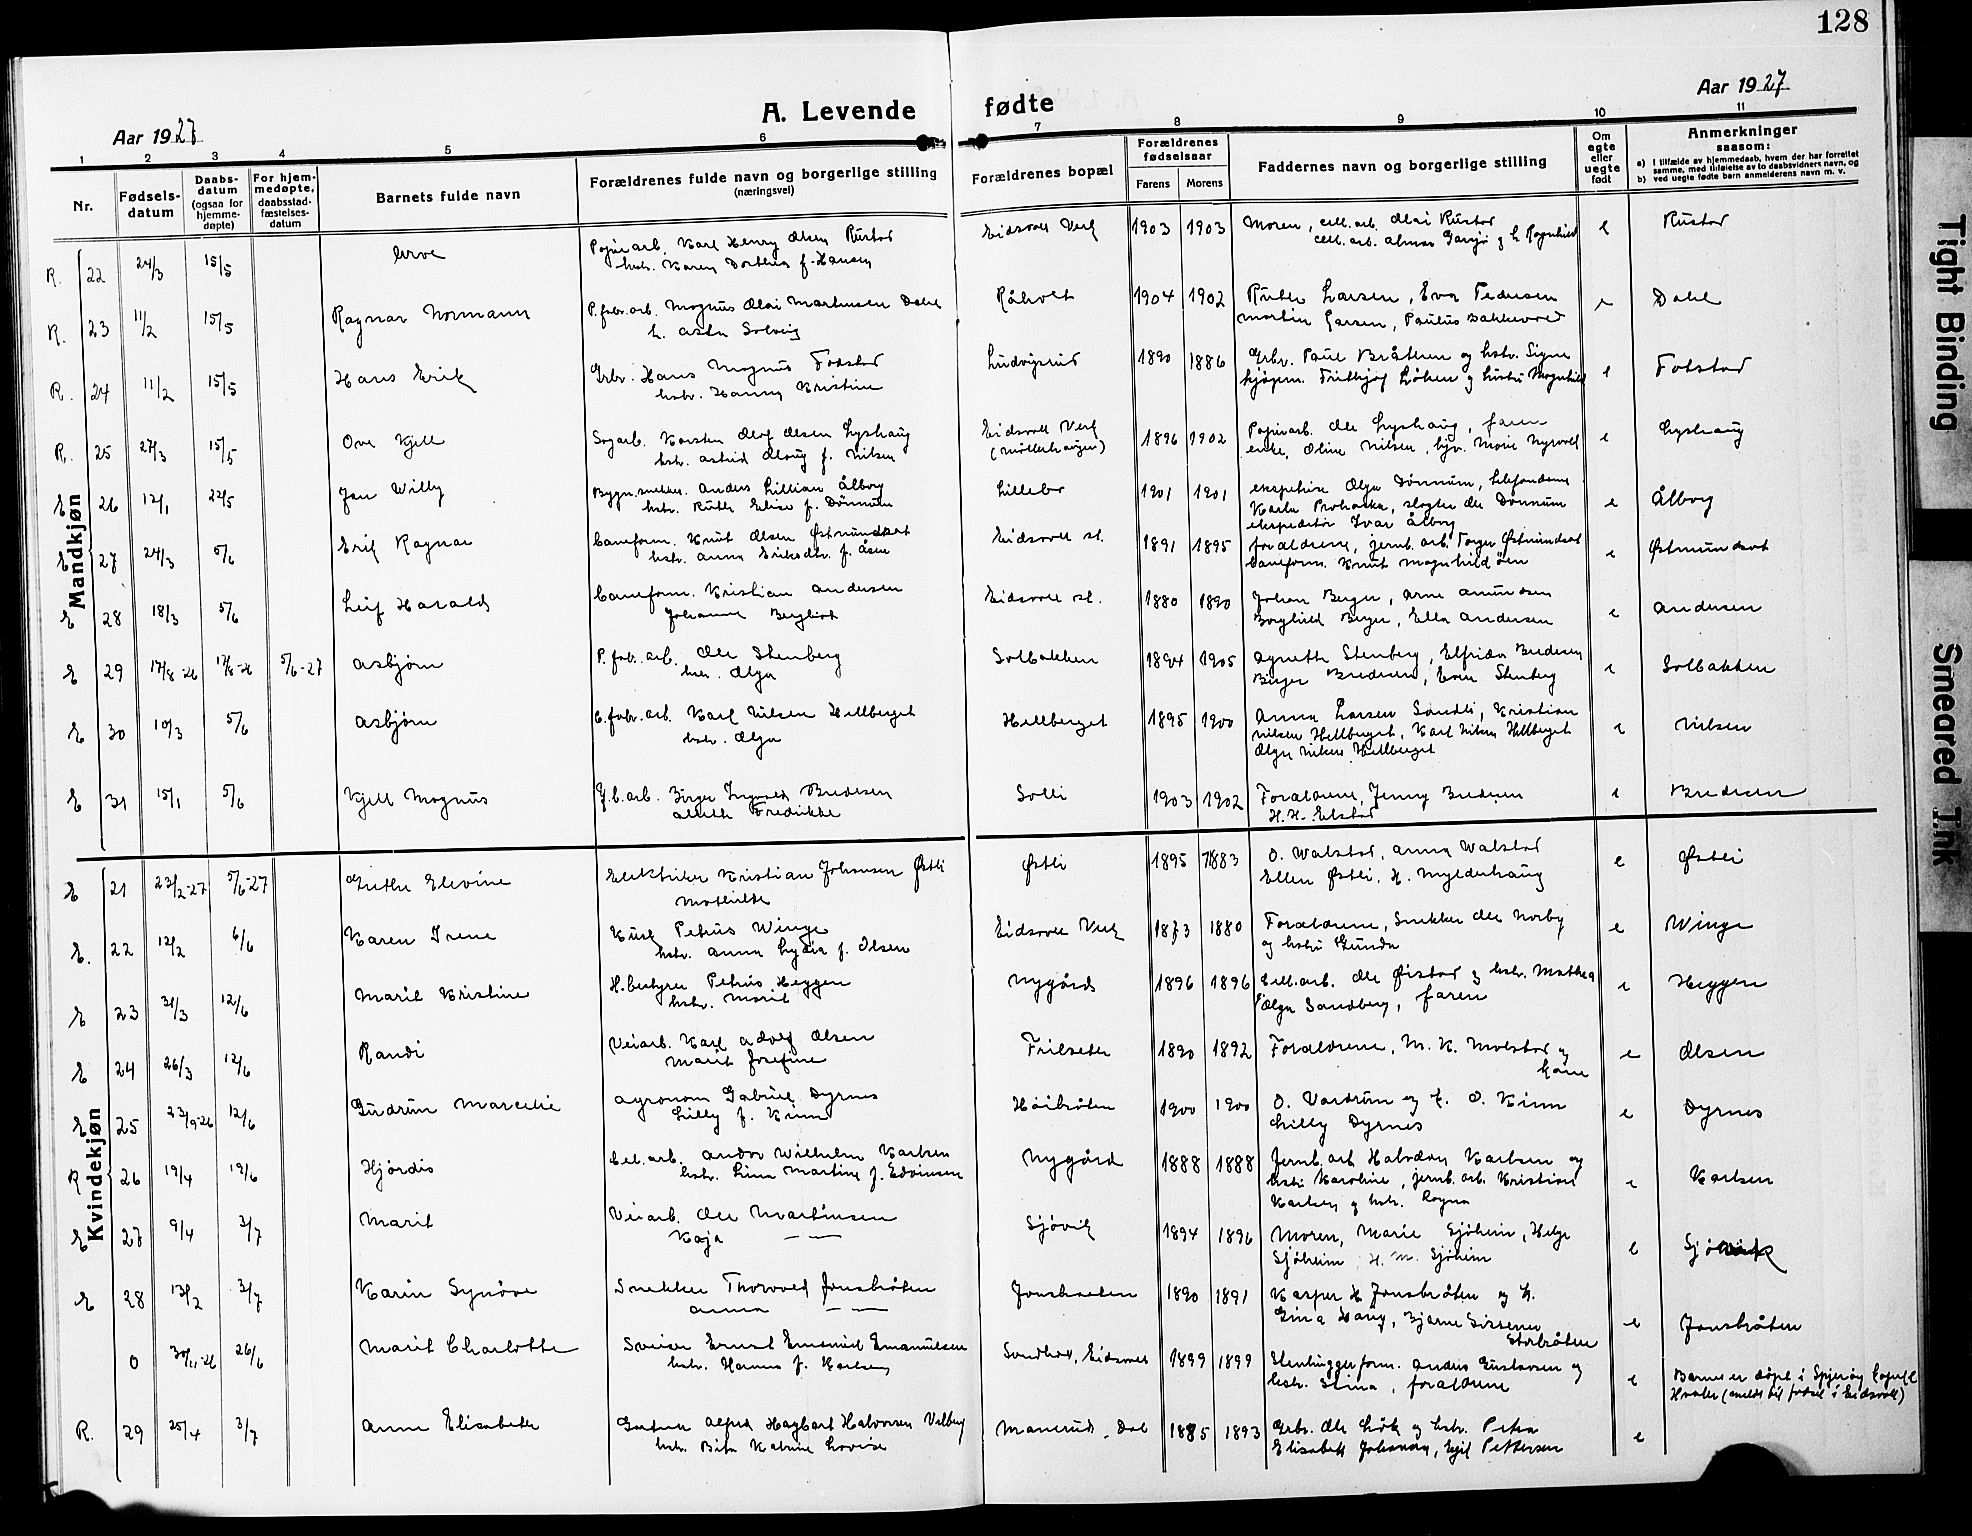 128
Aar 1927
A. Levende fødte
Aar 1927
1 2 3 4 5 6 7 8 9 10 11
Nr.
Fødsels-
datum
Daabs-
datum
(ogsaa for
hjemme-
døpte)
For hjem-
medøpte,
daabsstad-
fæstelses-
datum
Barnets fulde navn
Forældrenes fulde navn og borgerlige stilling
(næringsvei)
Forældrenes bopæl
Forældrenes
fødselsaar
Farens Morens
Faddernes navn og borgerlige stilling
Om
egte
eller
uegte
født
Anmerkninger
saasom:
a) I tilfælde av hjemmedaab, hvem der har forrettet
samme, med tilføielse av to daabsvidners navn, og
b) ved uegte fødte barn anmelderens navn m. v.
Mandkjøn
R. 22 24/3 15/5 Arve Papirarb. Karl Henry Olsen Rustad Eidsvoll Verk 1903 1903 Moren, cell.arb. Olai Rustad e Rustad
hstr. Karen Dorthea f. Hansen
R. 23 11/2 15/5 Ragnar Normann P.fabr.arb. Magnus Olai Martinsen Dahl Råholt 1904 1902 Ruth Larsen, Eva Pedersen e Dahl
h. Asta Solveig Martin Larsen, Paulus Bakkevold
R. 24 11/2 15/5 Hans Erik Grbr. Hans Magnus Fotstad Ludvigsrud 1890 1886 Grbr. Paul Bråthen og hstr. Signe e Fotstad
hstr. Hanna Kristine kjøpm. Fridtjof Løken og hustru Magnhild
R. 25 27/3 15/5 Ove Kjell Sagarb. Karsten Olaf Olsen Lyshaug Eidsvoll Verk 1896 1902 Papirarb. Ole Lyshaug, faren e Lyshaug
hstr. Astrid Olaug f. Nilsen (Møllerhaugen) enke Oline Nilsen, Marie Nyvold
E 26 12/1 22/5 Jan Willy Bygn.snekker Anders Lillian Ålborg 1901 1901 Olga Dønnum e Ålborg
hstr. Ruth Elise f. Dønnum Karla slagter Ole Dønnum
ekspeditør Ivar Ålborg
E 27 24/3 5/6 Erik Ragnar Baneform. Knut Olsen Østmundset Eidsvoll st. 1891 1895 foreldrene, jernb.arb. Torger Østmundset e Østmundset
hstr. Anna Eriksdtr. f. Åsen baneform. Knut Magnhild Øien
E 28 18/3 5/6 Leif Harald Baneform. Kristian Andersen Eidsvoll st. 1880 1890 Johan Berger, Arne Amundsen e Andersen
Johanne Bergliot Borghild Berger, Ella Andersen
E 29 17/8-26 5/6-27 Asbjørn P.fabr.arb. Ole Stenberg Solbakken 1894 1905 Agnethe Stenberg, Elfrida Bredesen e Solbakken
hstr. Olga Birger Bredesen, Even Stenberg
E 30 10/3 5/6 Asbjørn C.fabr.arb. Karl Nilsen Hellberget Hellberget 1895 1900 Anna Larsen Sandli, Kristian e Nilsen
hstr. Olga Nilsen Hellberget, Karl Nilsen Hellberget
Olga Nilsen Hellberget
E 31 15/1 5/6 Kjell Magnus J.b.arb. Birger Ingvald Bredesen Solli 1903 1902 Foreldrene, Jenny Bredesen e Bredesen
Alette Fredrikke H. H. Elstad
Kvindekjøn
E 21 23/2-27 5/6-27 Grethe Elevine Elektriker Kristian Johansen Østli Østli 1895 1883 O. Walstad, Anna Walstad e Østli
Mathilde Ellen Østli, H. Mylderhaug
E. 22 12/2 6/6 Karen Irene Kusk Petrus Winge Eidsvoll Verk 1873 1880 Foreldrene, Snekker Ole Norby e Winge
hstr. Anna Lydia f. Olsen og hstr. Gunda
E 23 31/3 12/6 Marit Kristine H.bestyrer Petrus Heggen Nygård 1896 1896 Cell.arb. Ole Øistad og hstr. Mathea e Heggen
hstr. Marit Olga Sandberg, faren
E 24 26/3 12/6 Randi Veiarb. Karl Adolf Olsen Frilseter 1890 1892 Foreldrene, M. K. Molstad og e Olsen
Marit Josefine kone
E 25 23/9-26 12/6 Gudrun Marcelie Agronom Gabriel Dyrnes Høibråten 1900 1900 O. Vardrum og f. O. Kinn e Dyrnes
Lilly f. Kinn Lilly Dyrnes
R 26 19/4 19/6 Hjørdis Cel.arb. Andor Wilhelm Karlsen Nygård 1888 1888 Jernb.arb. Halvdan Karlsen og e Karlsen
hstr. Lina Martine f. Edvinsen hstr. Karoline, jernb.arb. Kristian
Karlsen og hstr. Ragna
E 27 9/4 3/7 Marit Veiarb. Ole Martinsen Sjøvik 1894 1896 Moren, Marie Sjøheim, Helge e Sjøvik
Kaja — — Sjøheim, H. M. Sjøheim
E 28 13/2 3/7 Karin Synøve Snekker Thorvald Jonsbråten Jonsbråten 1890 1891 Kasper H. Jonsbråten og h. e Jonsbråten
Anna — — Gina Haug, Bjarne Sissener
Storbråten
0 30/11-26 26/6 Marit Charlotte Sveiser Ernst Emanuel Emanuelsen Sundby, Eidsvoll 1899 1899 Stenhuggerform. Anders Gustavsen og e Barnet er døpt i Spjerøy kapell
hstr. Hanna f. Karlsen hstr. Stina, foreldrene Hvaler (meldt til fødsel i Eidsvoll)
R. 29 25/4 3/7 Anne Elisabeth Gartner Alfred Hagbart Halvorsen Velberg Manerud, Dal 1885 1893 Grbr. Ole Løk og hstr. Petra e
hstr. Katrine Lovise Elisabeth Johansen, Egil Pettersen
Tight Binding
Smeared Ink